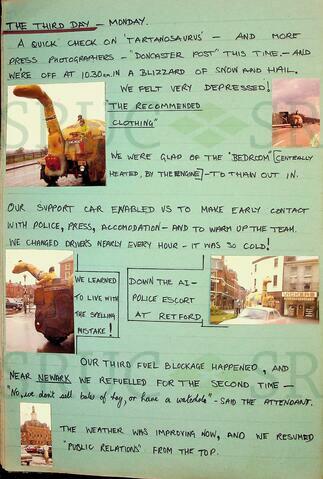 THE THIRD DAY – MONDAY.
A QUICK CHECK ON 'TARTANOSAURUS' – AND MORE
PRESS PHOTOGRAPHERS – "DONCASTER POST" THIS TIME. – AND
WERE OFF AT 10.30am IN A BLIZZARD OF SNOW AND HAIL.
WE FELT VERY DEPRESSED!
"THE RECOMMENDED
CLOTHING"
WE WERE GLAD OF THE "BEDROOM" [CENTRALLY
HEATED, BY THE ENGINE] – TO THAW OUT IN.
OUR SUPPORT CAR ENABLED US TO MAKE EARLY CONTACT
WITH POLICE, PRESS, ACCOMODATION – AND TO WARM UP THE TEAM.
WE CHANGED DRIVERS NEARLY EVERY HOUR – IT WAS SO COLD!
WE LEARNED
TO LIVE WITH
THE SPELLING
MISTAKE!
DOWN THE A1 –
POLICE ESCORT
AT RETFORD.
OUR THIRD FUEL BLOCKAGE HAPPENED, AND
NEAR NEWARK WE REFUELLED FOR THE SECOND TIME –
"No, we don't sell bales of hay, or have a waterhole" – SAID THE ATTENDANT.
THE WEATHER WAS IMPROVING NOW, AND WE RESUMED
'PUBLIC RELATIONS' FROM THE TOP.